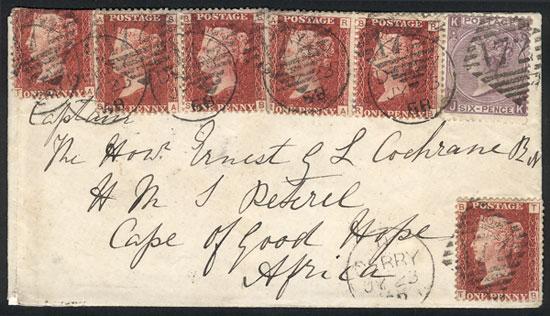 POSTAGE
ONE PENNY
POSTAGE
ONE PENNY
POSTAGE
ONE PENNY
POSTAGE
ONE PENNY
POSTAGE
ONE PENNY
K POSTAGE
J SIX-PENCE K
Captain
The Honb. Ernest G L Cochrane R N
H M S Peterel
Cape of Good Hope
Africa
DERRY
JY 23
B POSTAGE T
T ONE PENNY B